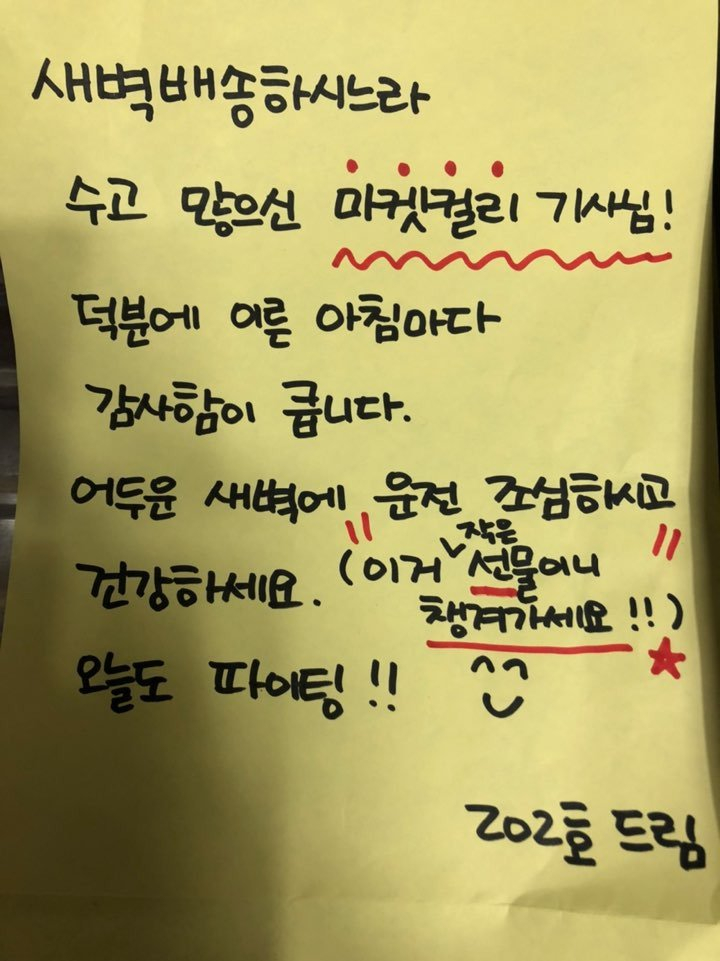 새벽배송하시느라
수고 많으신 마켓컬리 기사님!
덕분에 이른 아침마다
감사함이 큽니다.
어두운 새벽에 운전 조심하시고
건강하세요. (이거 작은 선물이니
챙겨가세요!!)
오늘도 파이팅!!
202호 드림